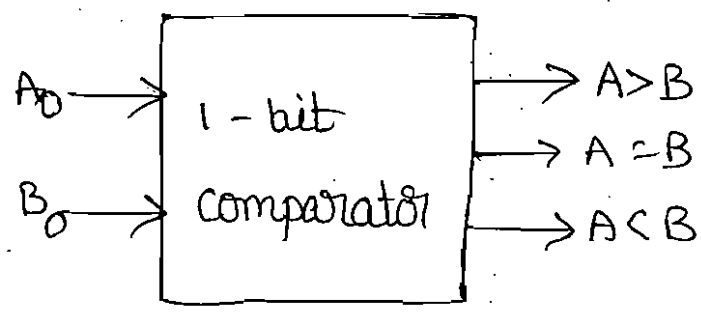 A0
B0
1-bit
comparator
A>B
A=B
A<B